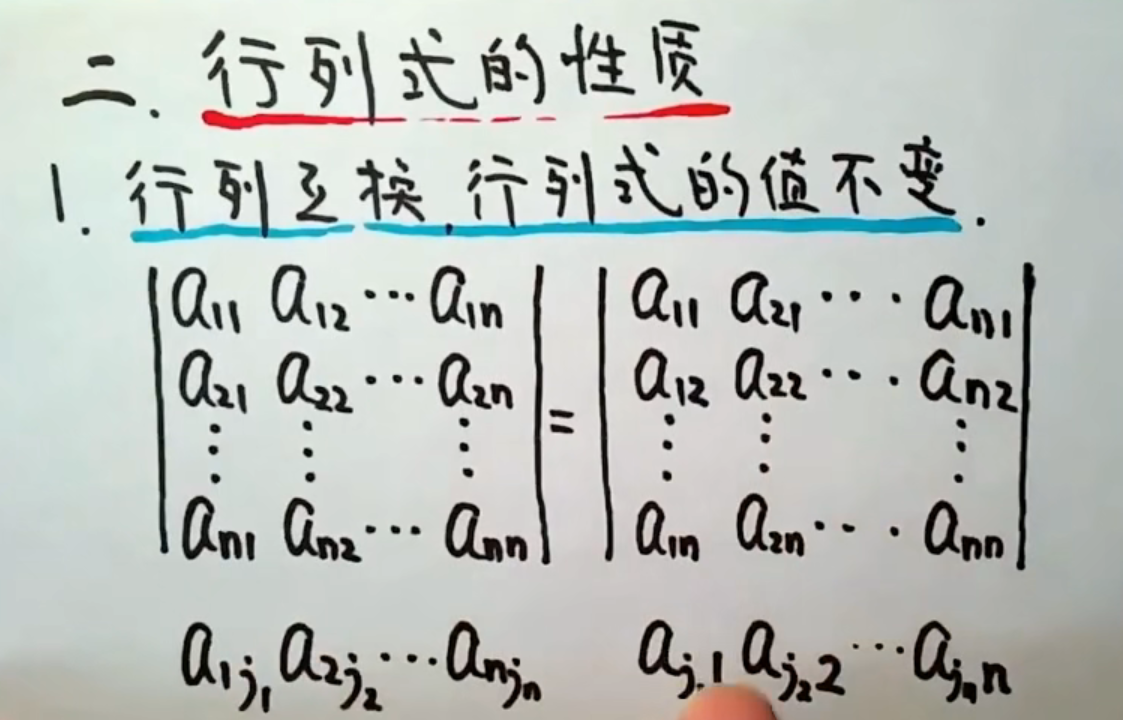 二. 行列式的性质
1. 行列互换,行列式的值不变.
| a₁₁ a₁₂ ··· a₁ₙ | | a₁₁ a₂₁ ··· aₙ₁ |
| a₂₁ a₂₂ ··· a₂ₙ | = | a₁₂ a₂₂ ··· aₙ₂ |
| ⋮ ⋮ ⋮ | | ⋮ ⋮ ⋮ |
| aₙ₁ aₙ₂ ··· aₙₙ | | a₁ₙ a₂ₙ ··· aₙₙ |
a_{1j₁} a_{2j₂} ··· a_{njₙ} a_{j₁1} a_{j₂2} ··· a_{jₙn}